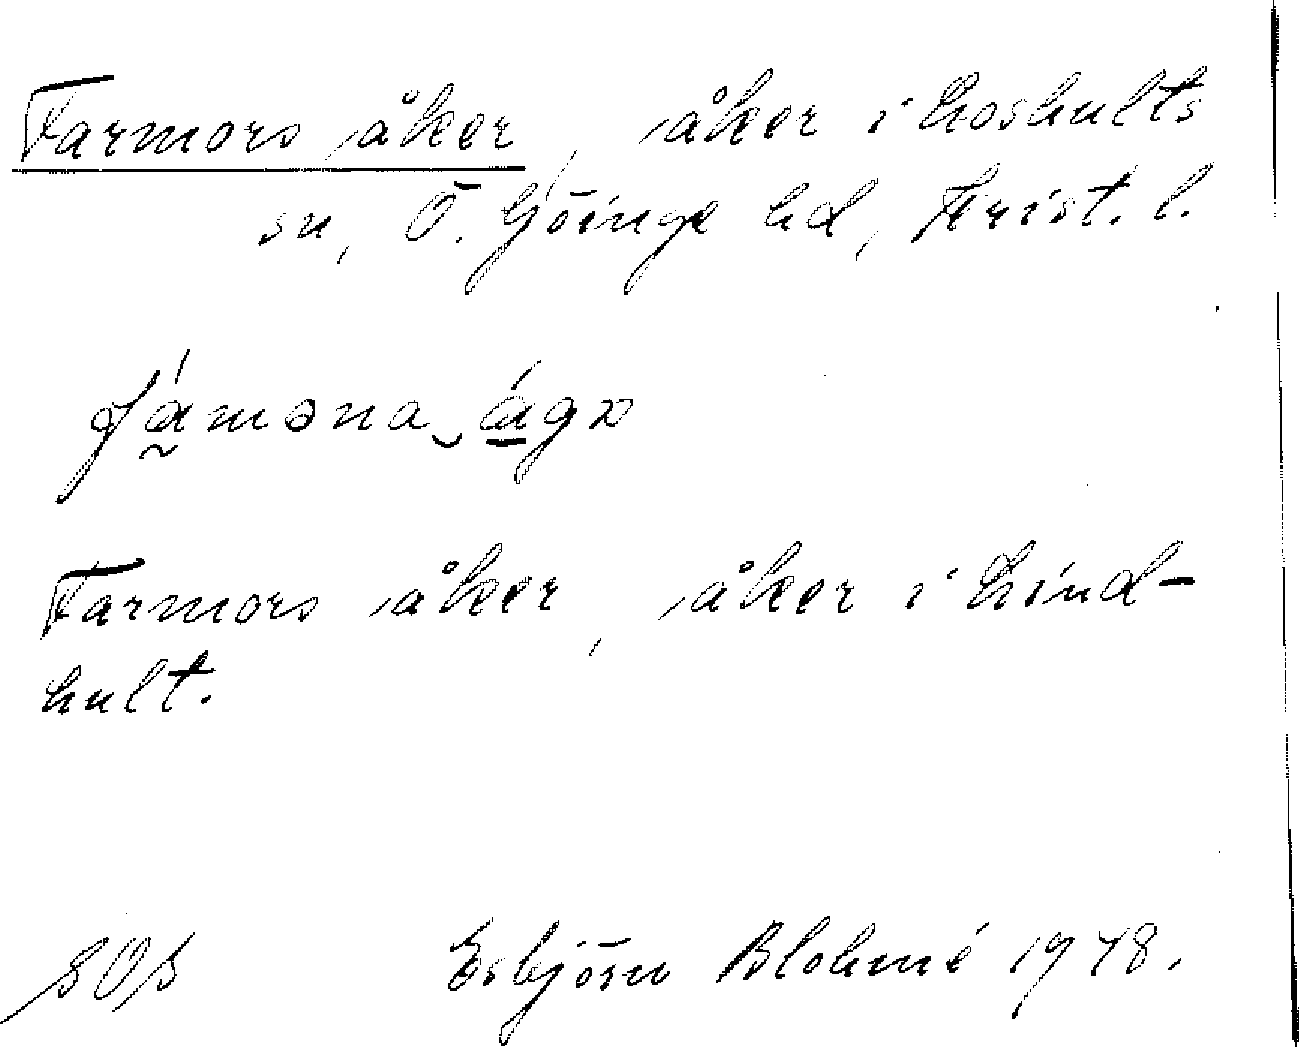 Farmors åker, åker i Loshults
sn, Ö. Göinge hd, Krist. l.
fáməna ága
Farmors åker, åker i Lind-
hult.
SOS Esbjörn Blohmé 1948.